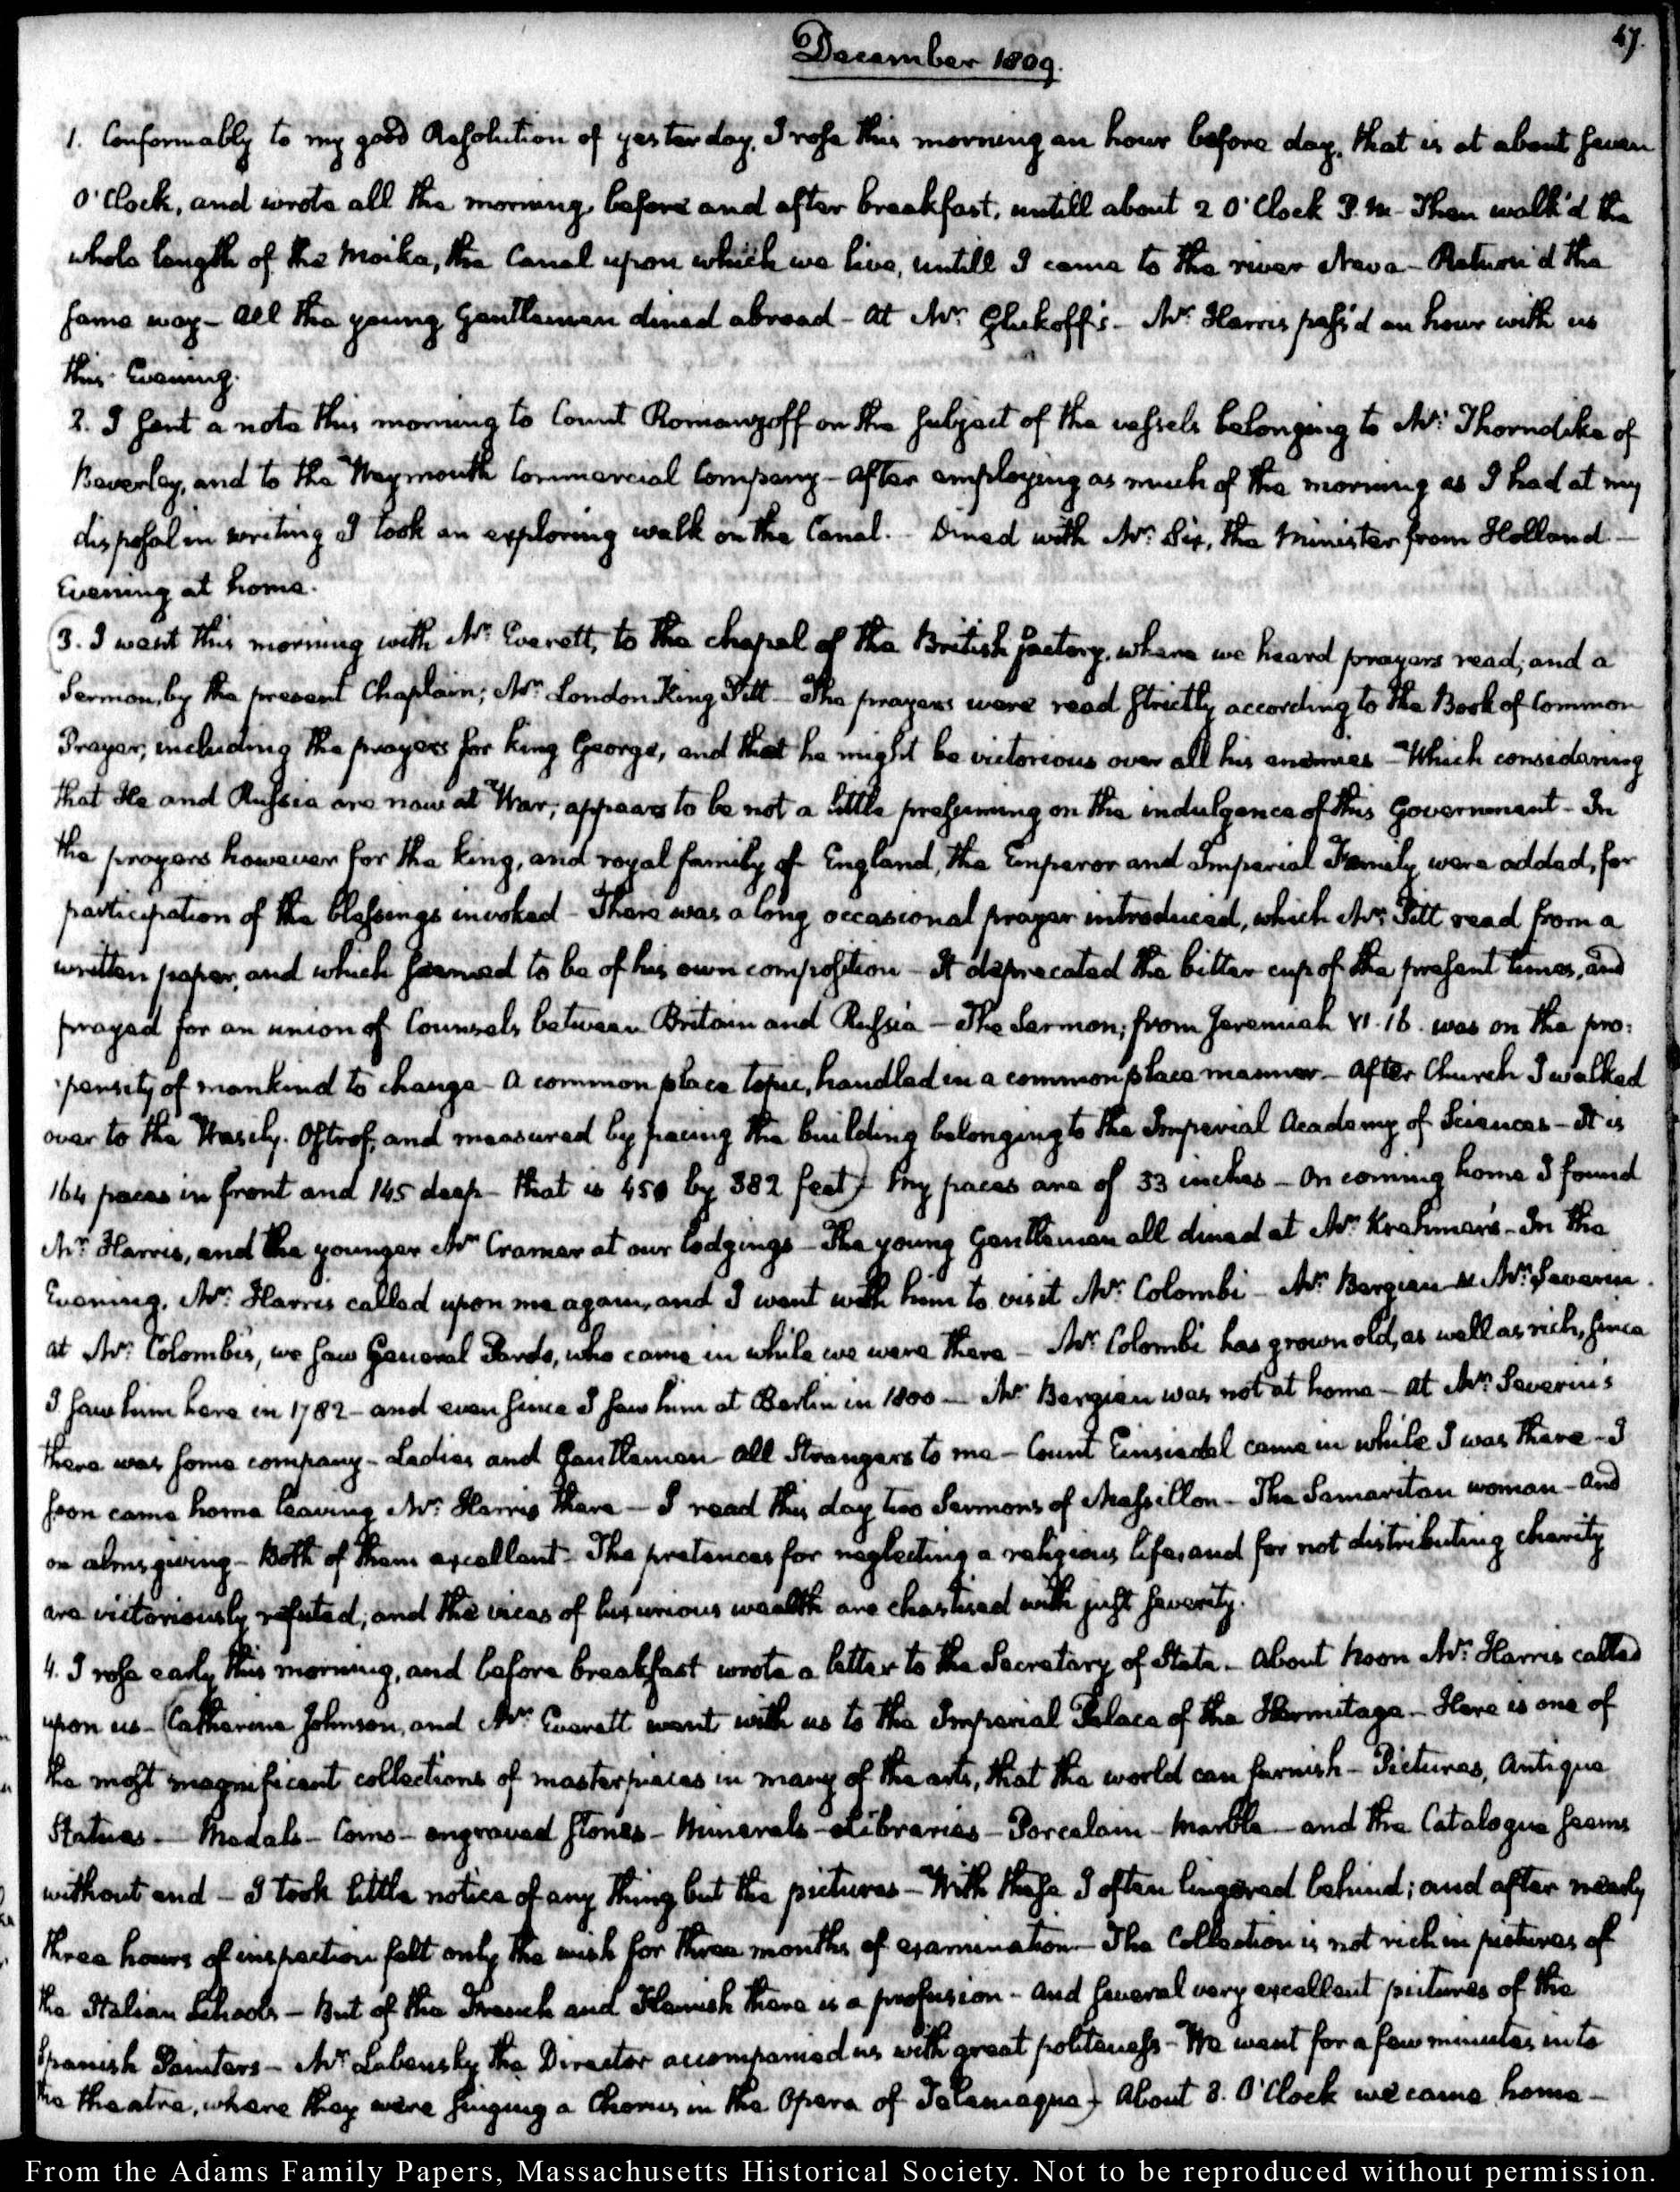 47.
December 1809.
1. Conformably to my good Resolution of yesterday, I rose this morning an hour before day, that is at about seven
O'Clock, and wrote all the morning, before and after breakfast, untill about 2 O'Clock P.M- Then walk'd the
whole length of the Moika, the Canal upon which we live, untill I came to the river Neva- Return'd the
same way- All the young Gentlemen dined abroad- At Mr: Glukoff's- Mr: Harris pass'd an hour with us
this Evening.
2. I sent a note this morning to Count Romanzoff on the subject of the vessels belonging to Mr: Thorndike of
Beverley, and to the Weymouth Commercial Company- After employing as much of the morning as I had at my
disposal in writing I took an exploring walk on the Canal.- Dined with Mr: Six, the Minister from Holland-
Evening at home.
3. I went this morning with Mr: Everett, to the chapel of the British factory, where we heard prayers read, and a
Sermon, by the present Chaplain; Mr: London King Pitt- The prayers were read strictly according to the Book of Common
Prayer, including the prayers for King George, and that he might be victorious over all his enemies- Which considering
that He and Russia are now at War, appears to be not a little presuming on the indulgence of this Government- In
the prayers however for the King, and royal family of England, the Emperor and Imperial Family were added, for
participation of the blessings invoked- There was a long occasional prayer introduced, which Mr: Pitt read from a
written paper, and which seemed to be of his own composition- It deprecated the bitter cup of the present times, and
prayed for an union of Counsels between Britain and Russia- The Sermon, from Jeremiah VI. 16. was on the pro:
pensity of mankind to change- A common place topic, handled in a common place manner- After Church I walked
over to the Wasily-Ostrof, and measured by pacing the building belonging to the Imperial Academy of Sciences- It is
164 paces in front and 145 deep- that is 450 by 382 feet) My paces are of 33 inches- On coming home I found
Mr: Harris, and the younger Mr: Cramer at our lodgings- The young Gentlemen all dined at Mr: Krehmer's- In the
Evening, Mr: Harris called upon me again, and I went with him to visit Mr: Colombi- Mr: Bergien & Mr: Severin.
at Mr: Colombi's, we saw General Pardo, who came in while we were there- Mr: Colombi has grown old, as well as rich, since
I saw him here in 1782- and even since I saw him at Berlin in 1800- Mr: Bergien was not at home- At Mr: Severin's
there was some company- Ladies and Gentlemen- All Strangers to me- Count Einsiedel came in while I was there- I
soon came home leaving Mr: Harris there- I read this day two Sermons of Massillon- The Samaritan woman- and
on alms giving- Both of them excellent- The pretences for neglecting a religious life, and for not distributing charity
are victoriously refuted, and the vices of luxurious wealth are chastised with just severity.
4. I rose early this morning, and before breakfast wrote a letter to the Secretary of State- About Noon Mr: Harris called
upon us- (Catherine Johnson, and Mr: Everett went with us to the Imperial Palace of the Hermitage- Here is one of
the most magnificent collections of masterpieces in many of the arts, that the world can furnish- Pictures, Antique
Statues- Medals- Coins- engraved stones- Minerals- Libraries- Porcelain- Marble- and the Catalogue seems
without end- I took little notice of any thing but the pictures- With these I often lingered behind; and after nearly
three hours of inspection felt only the wish for three months of examination- The Collection is not rich in pictures of
the Italian Schools- But of the French and Flemish there is a profusion- And several very excellent pictures of the
Spanish Painters- Mr: Labensky the Director accompanied us with great politeness- We went for a few minutes into
the theatre, where they were singing a Chorus in the Opera of Telemaque) About 3. O'Clock we came home-
From the Adams Family Papers, Massachusetts Historical Society. Not to be reproduced without permission.